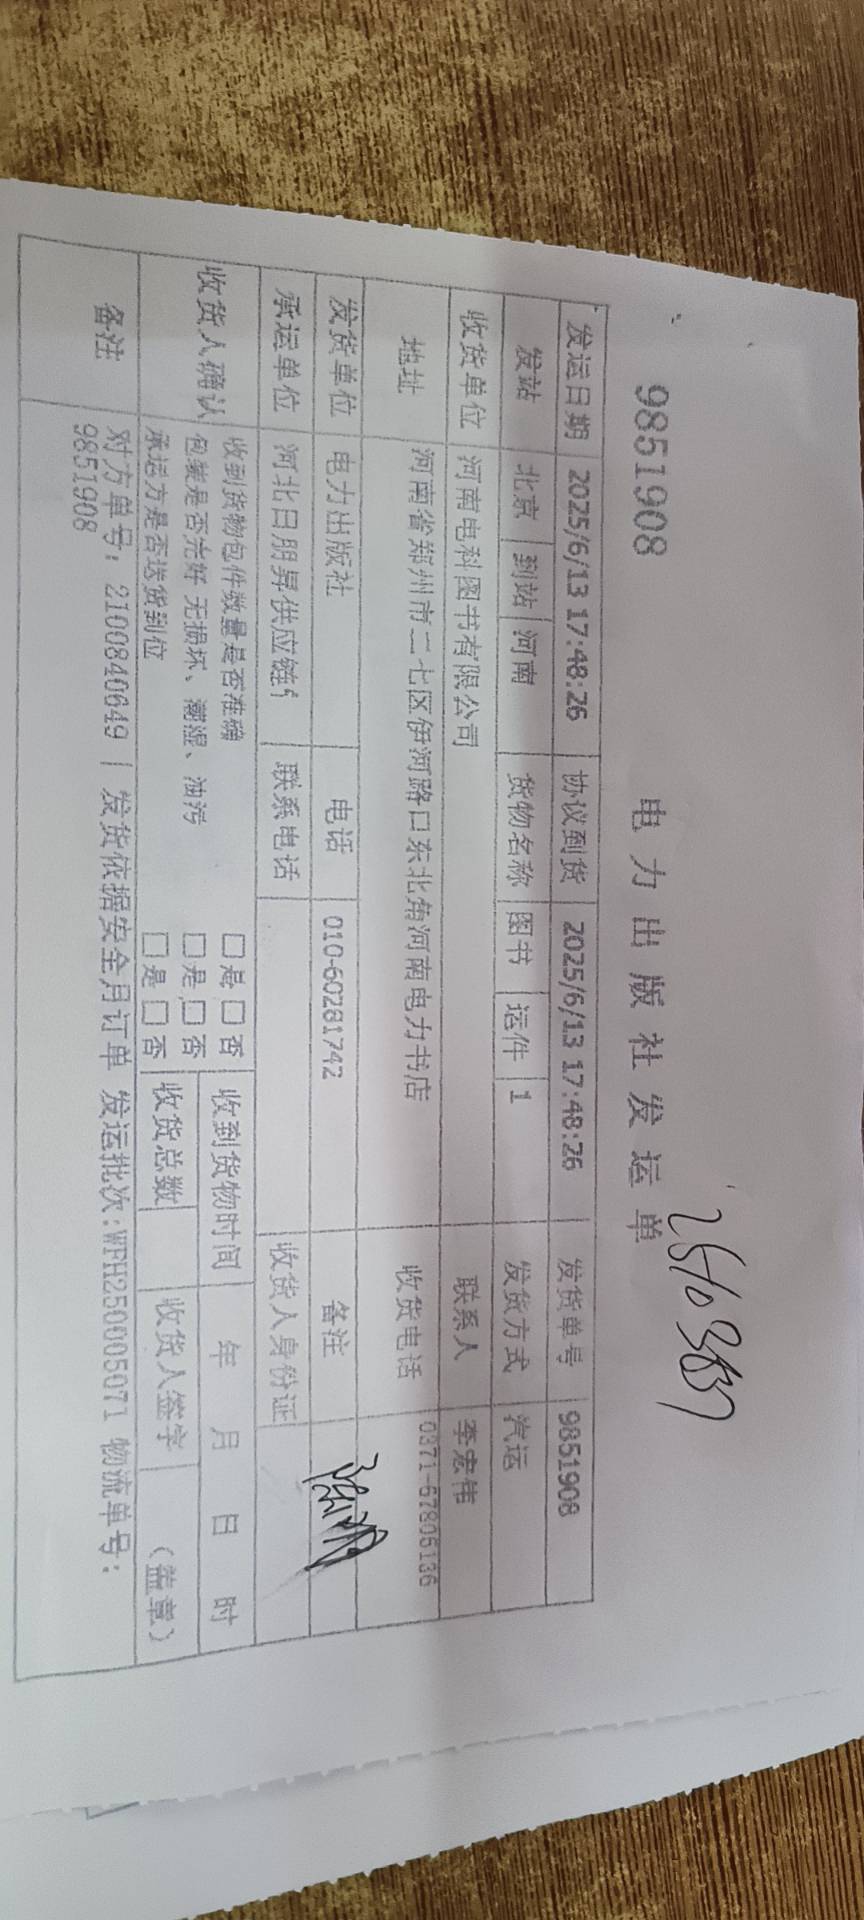 9851908
电力出版社发运单
发运日期 2025/6/13 17:48:26 协议到货 2025/6/13 17:48:26 发货单号 9851908
发站 北京 到站 河南 货物名称 图书 运件 1 发货方式 汽运
收货单位 河南电科图书有限公司 联系人 李宏伟
地址 河南省郑州市二七区伊河路口东北角河南电力书店 收货电话 0371-67805136
发货单位 电力出版社 电话 010-60281742 备注
承运单位 河北日朋昇供应链 联系电话 收货人身份证
收货人确认 收到货物包件数量是否准确 □是□否 收到货物时间 年 月 日 时
包装是否完好 无损坏、潮湿、油污 □是□否
承运方是否送货到位 □是□否 收货总数 收货人签字 (盖章)
备注 对方单号: 2100840649 | 发货依据安全月订单 发运批次:WFH250005071 物流单号:
9851908